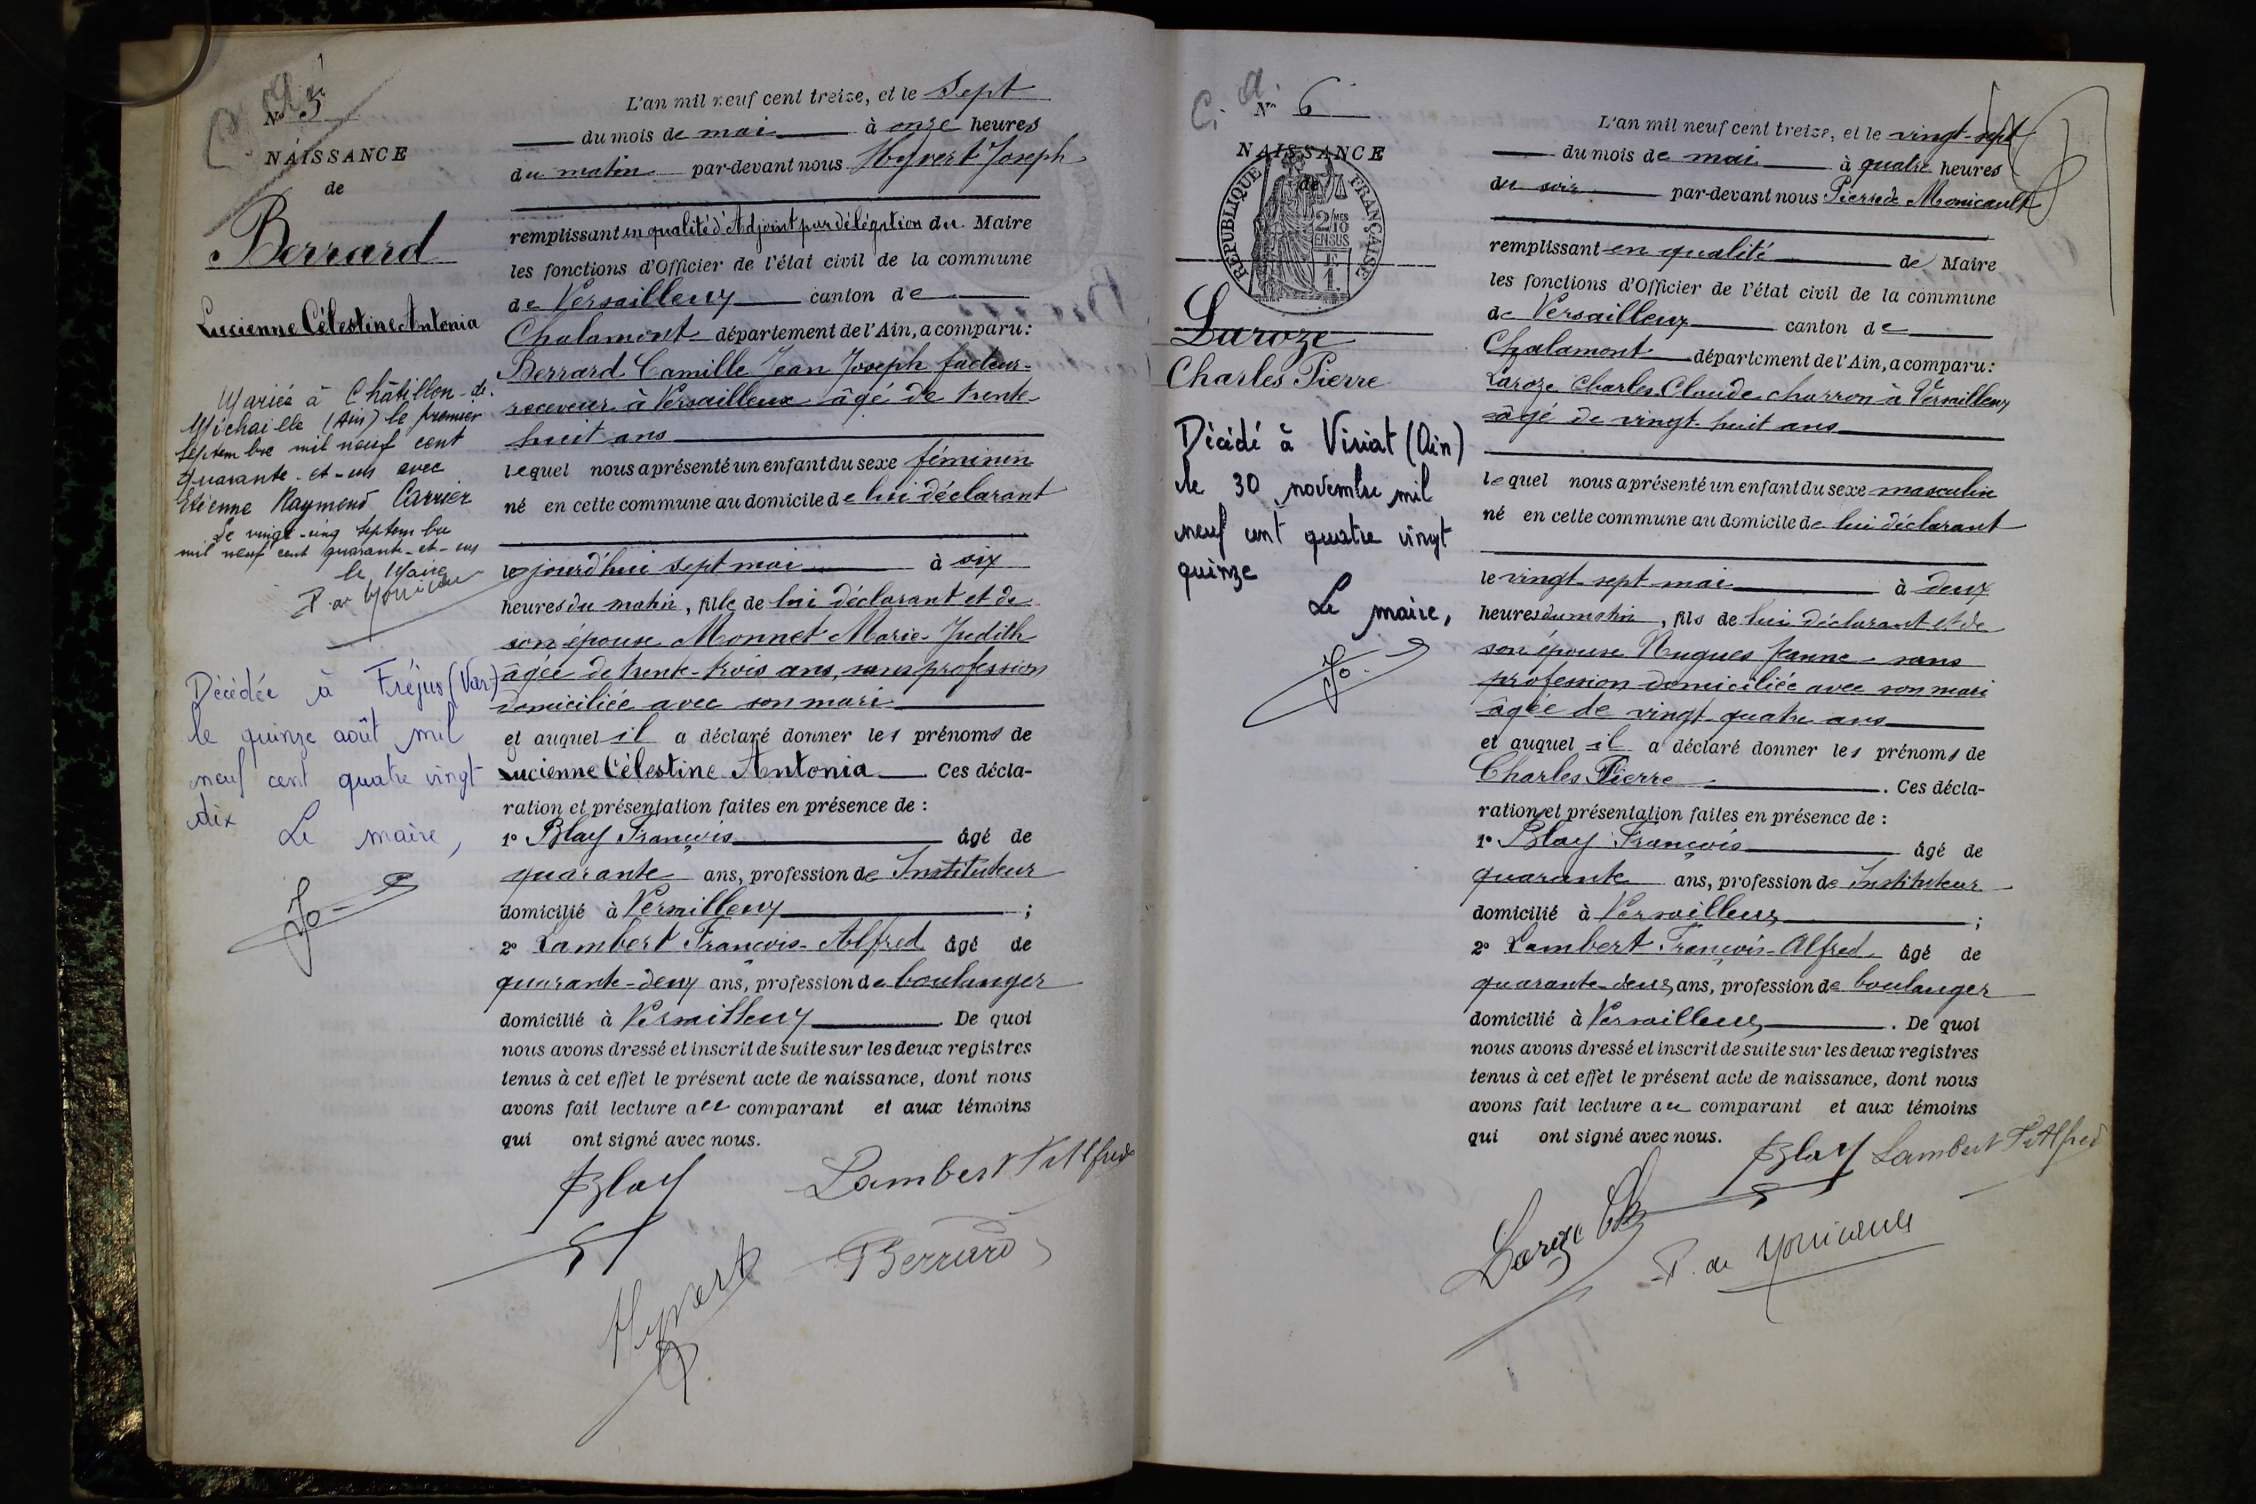 Nº 5
NAISSANCE
de
Berrard
Lucienne Célestine Antonia
Mariée à Châtillon-de-
Michaille (Ain) le premier
septembre mil neuf cent
quarante-et-un avec
Etienne Raymond Carrier
Le vingt-cinq septembre
mil neuf cent quarante-et-un
le Maire
P. de Monicault
Décédée à Fréjus (Var)
le quinze août mil
neuf cent quatre vingt
dix
Le maire,
L'an mil neuf cent treize, et le sept
du mois de mai à onze heures
du matin par-devant nous Hyvert Joseph
remplissant en qualité d'Adjoint par délégation du Maire
les fonctions d'Officier de l'état civil de la commune
de Versailleux canton de
Chalamont département de l'Ain, a comparu :
Berrard Camille Jean Joseph facteur-
receveur à Versailleux âgé de trente
huit ans
lequel nous a présenté un enfant du sexe féminin
né en cette commune au domicile de lui déclarant
jourd'hui sept mai à six
heures du matin, fille de lui déclarant et de
son épouse Monnet Marie-Judith
âgée de trente-trois ans, sans profession
domiciliée avec son mari
et auquel il a déclaré donner les prénoms de
Lucienne Célestine Antonia. Ces décla-
ration et présentation faites en présence de :
1º Blay François âgé de
quarante ans, profession de Instituteur
domicilié à Versailleux ;
2º Lambert François-Alfred âgé de
quarante-deux ans, profession de boulanger
domicilié à Versailleux. De quoi
nous avons dressé et inscrit de suite sur les deux registres
tenus à cet effet le présent acte de naissance, dont nous
avons fait lecture au comparant et aux témoins
qui ont signé avec nous.
Blay Lambert F Alfred
Hyvert Berrard
C. a.
Nº 6
NAISSANCE
de
RÉPUBLIQUE FRANÇAISE
2/10MES
EN SUS
Laroze
Charles Pierre
Décédé à Viriat (Ain)
le 30 novembre mil
neuf cent quatre vingt
quinze
Le maire,
L'an mil neuf cent treize, et le vingt-sept
du mois de mai à quatre heures
du soir par-devant nous Pierre de Monicault
remplissant en qualité de Maire
les fonctions d'Officier de l'état civil de la commune
de Versailleux canton de
Chalamont département de l'Ain, a comparu :
Laroze Charles Claude charron à Versailleux
âgé de vingt-huit ans
lequel nous a présenté un enfant du sexe masculin
né en cette commune au domicile de lui déclarant
le vingt-sept mai à deux
heures du matin, fils de lui déclarant et de
son épouse Nugues Jeanne - sans
profession domiciliée avec son mari
âgée de vingt-quatre ans
et auquel il a déclaré donner les prénoms de
Charles Pierre. Ces décla-
ration et présentation faites en présence de :
1º Blay François âgé de
quarante ans, profession de Instituteur
domicilié à Versailleux ;
2º Lambert François-Alfred âgé de
quarante-deux ans, profession de boulanger
domicilié à Versailleux. De quoi
nous avons dressé et inscrit de suite sur les deux registres
tenus à cet effet le présent acte de naissance, dont nous
avons fait lecture au comparant et aux témoins
qui ont signé avec nous.
Blay Lambert F Alfred
Laroze Ch P. de Monicault